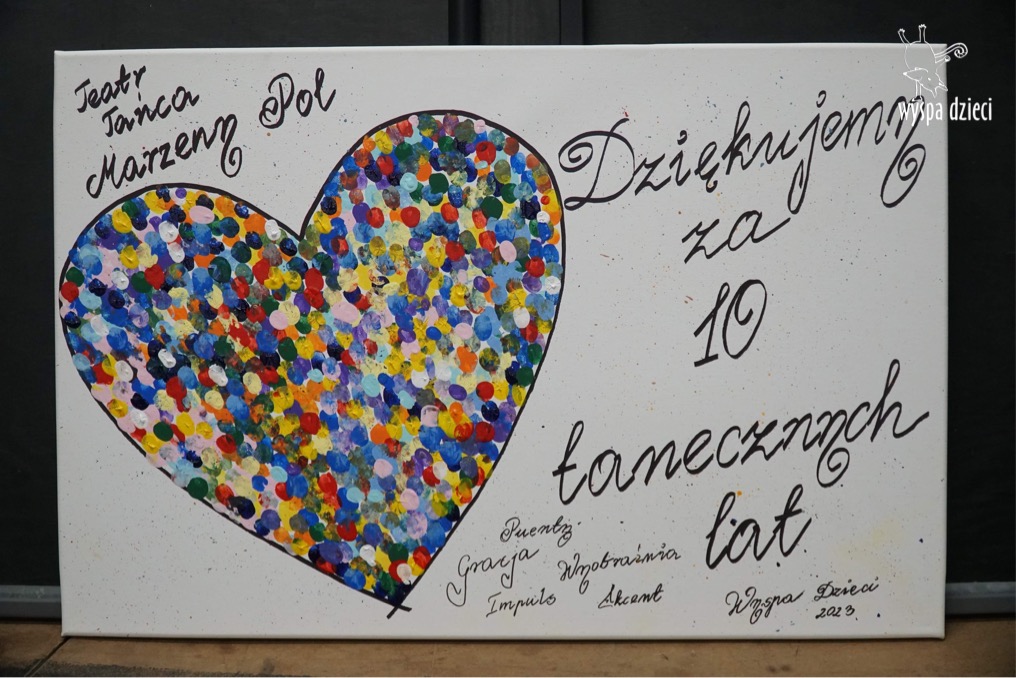 Teatr
Tańca
Marzeny Pol
Dziękujemy
za
10
tanecznych
lat
Puenty
Gracja Wyobraźnia
Impuls Akcent
Wyspa Dzieci
2023
wyspa dzieci